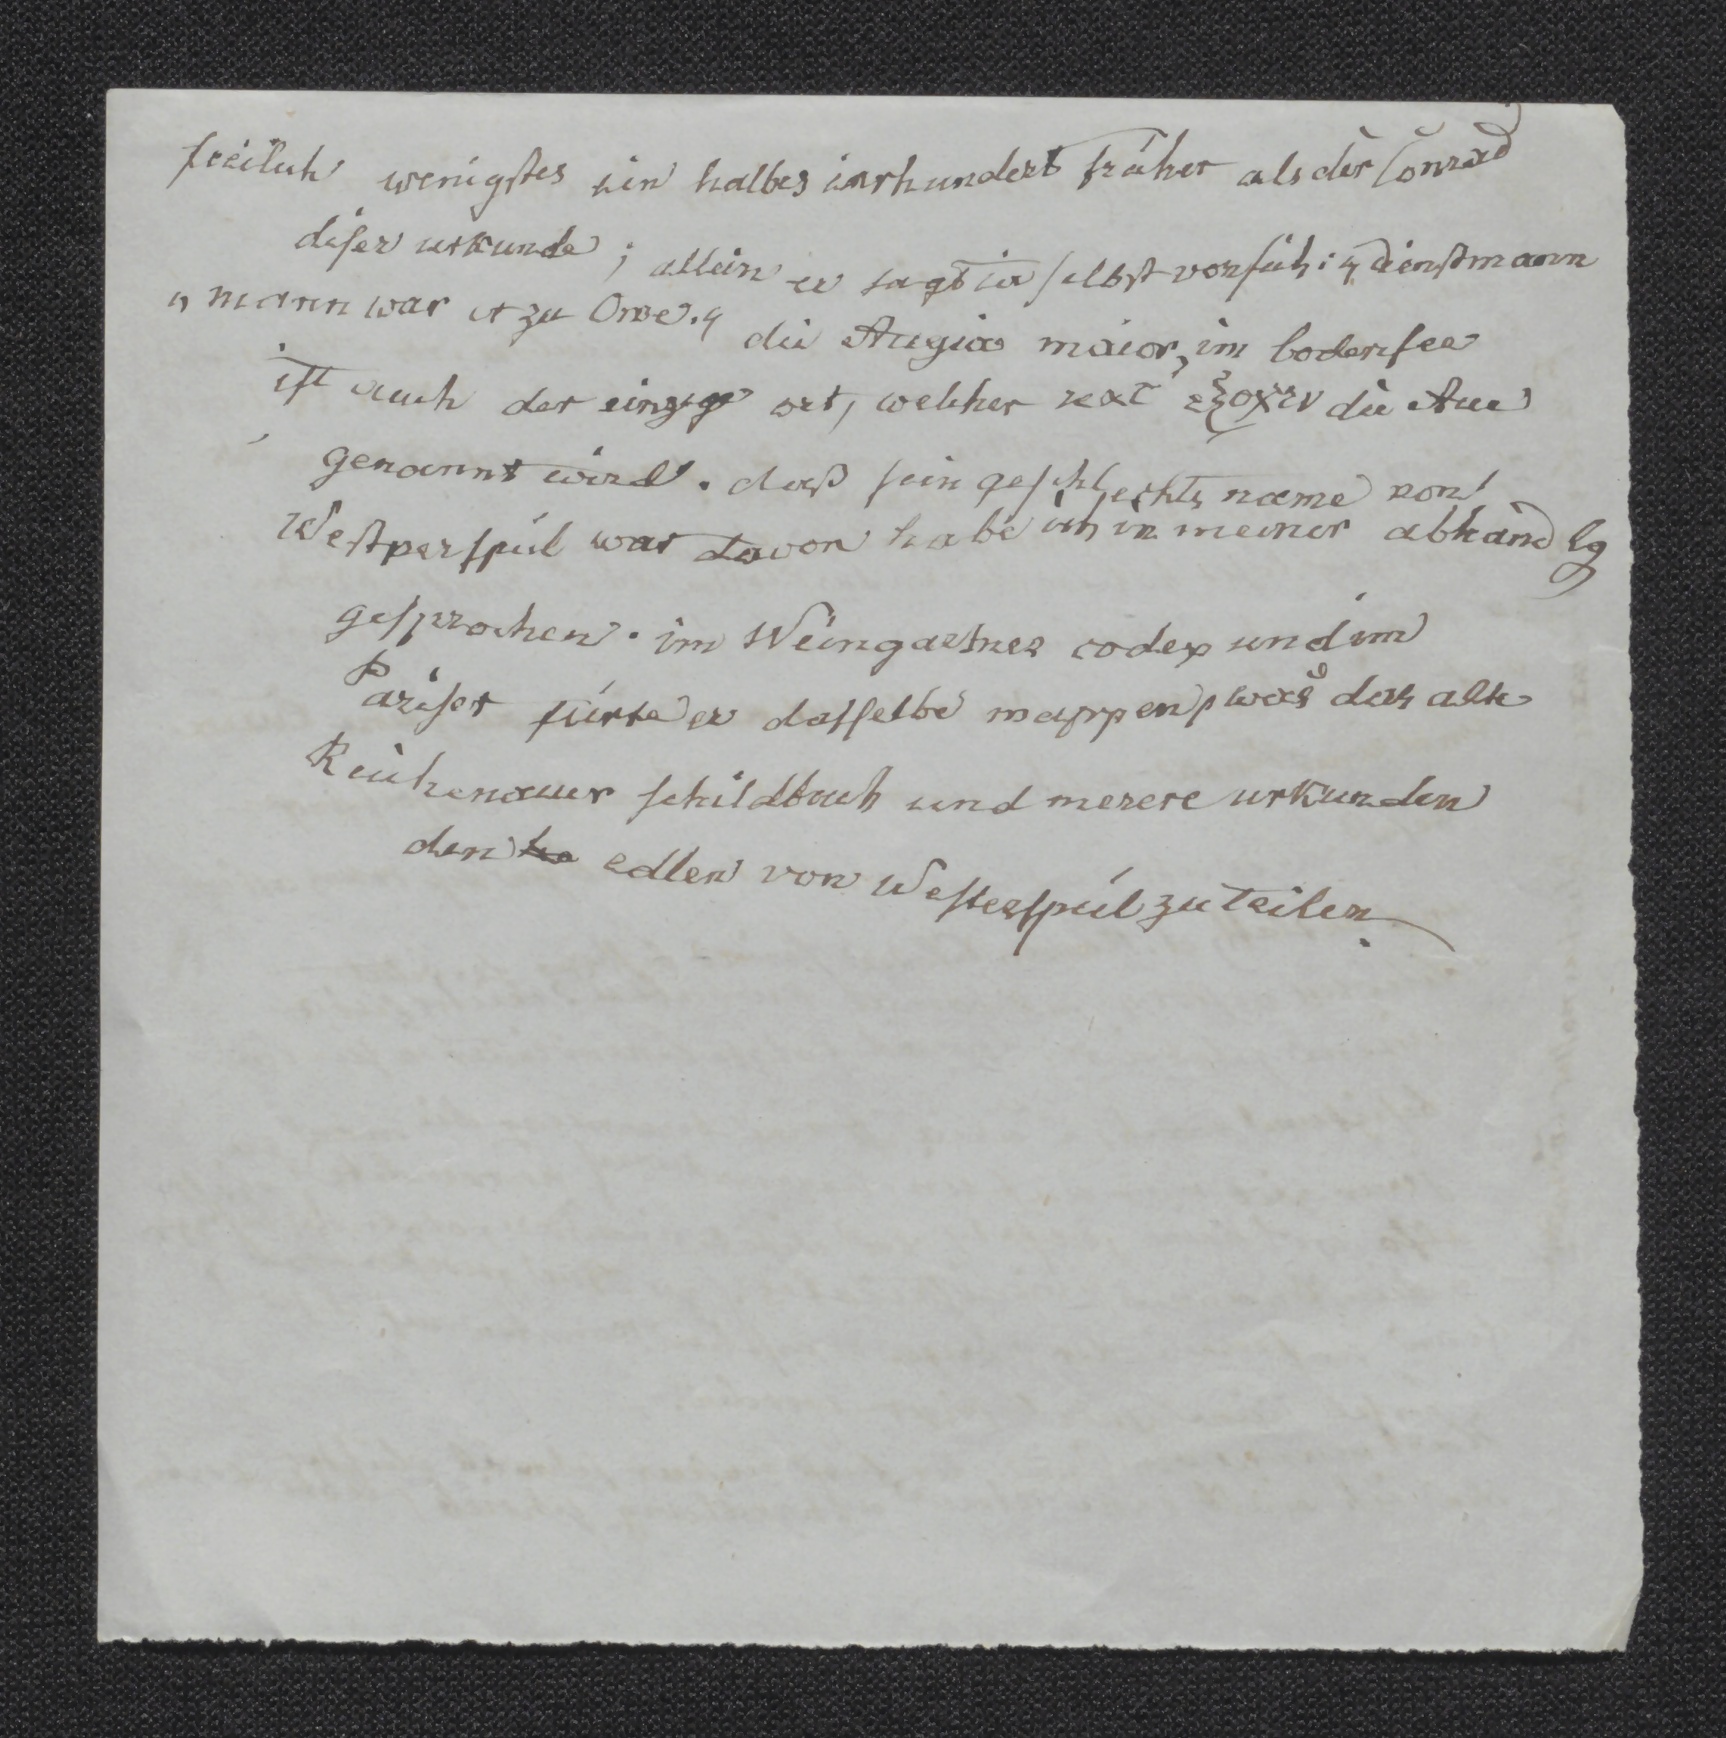 freilich wenigstes ein halbes iarhundert früher als der Conrad
diser urkunde; allein er sagt ia selbst von sich: „dienstmann
„mann war er zu Owe.“ die Augia maior, im bodensee
ist auch der einzige ort, welcher κατ' εξοχην die Aue
genannt wird. daß sein geschlechts name von
Westperspül war davon habe ich in meiner abhandlg
gesprochen. im Weingartner codex und im
Pariser fürte er dasselbe wappen, was das alte
Reichenauer schildbuch und merere urkunden
den edlen von Westerspül zuteilen.